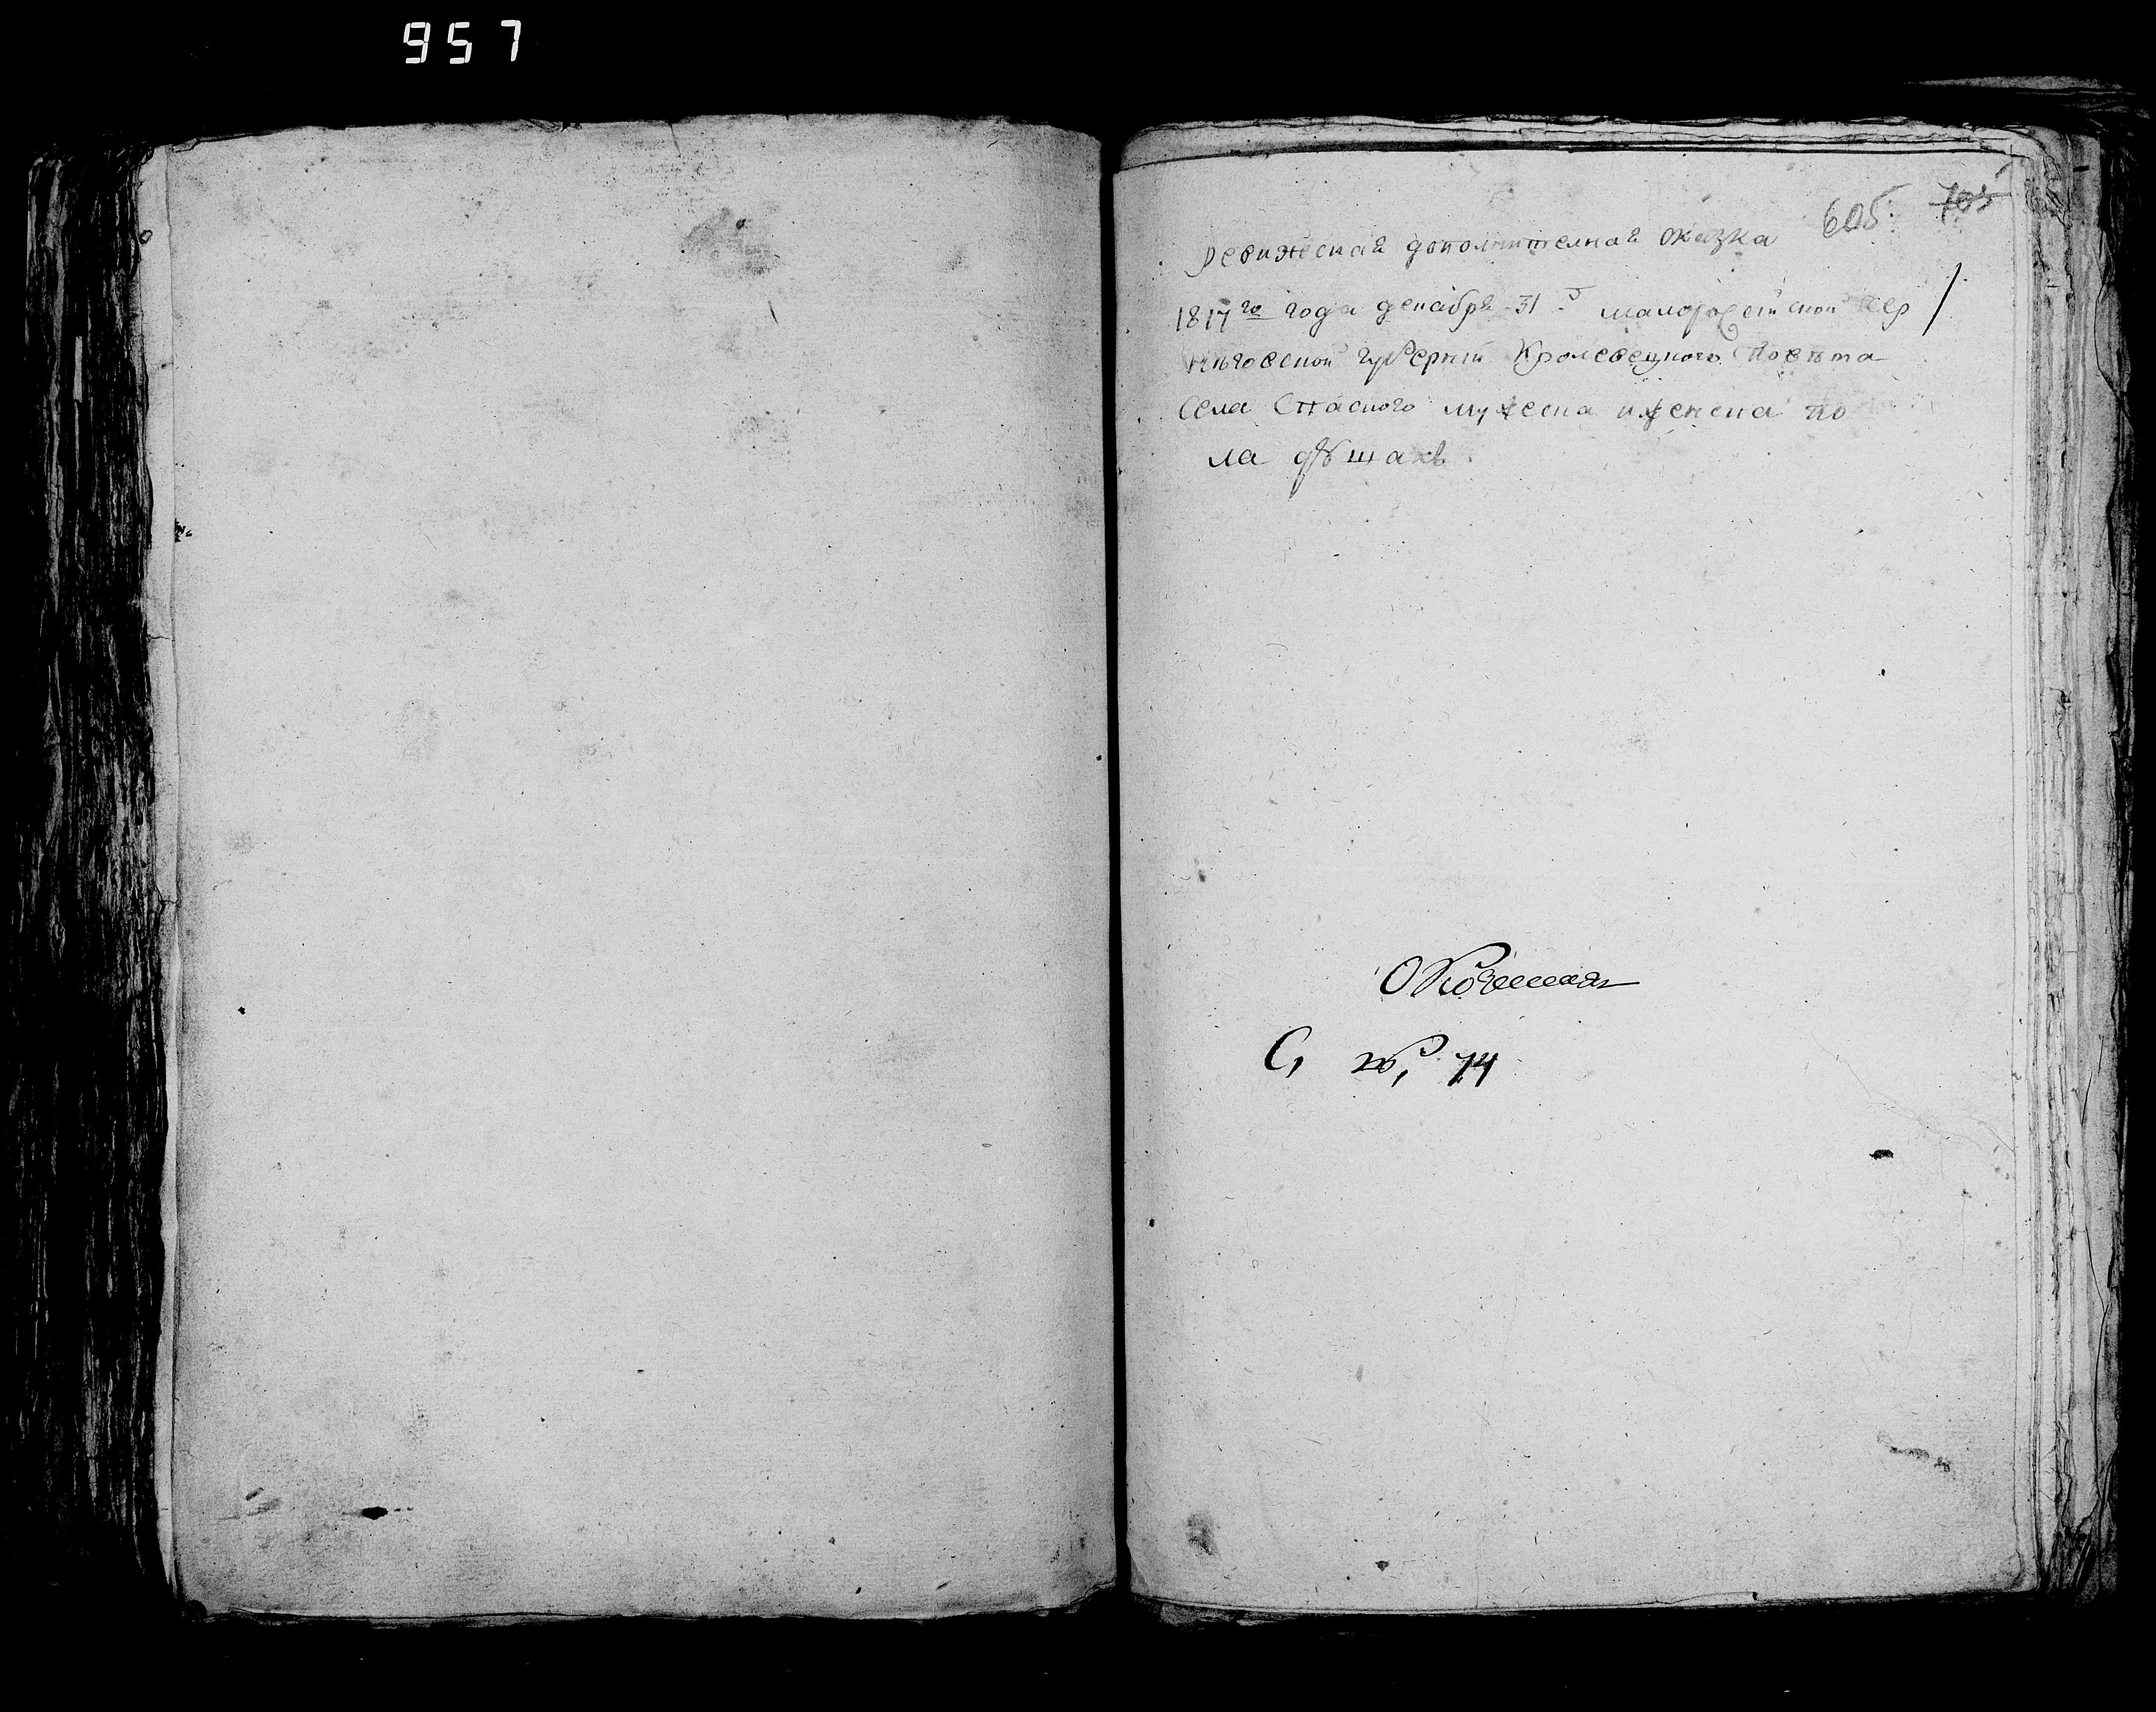 957
605 705
Ревижская дополнителная сказка
1817го года декабря 31 д малоросейской Чер
нѣговской губерний Кролевецкого Повѣта
Села Спаского мужеска и женска по
ла душахъ
С, 74